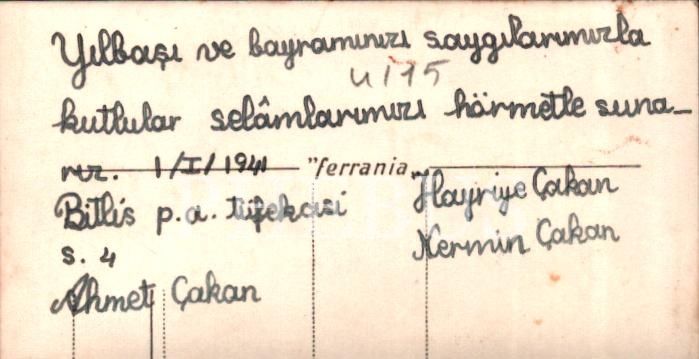 Yılbaşı ve bayramınızı saygılarımızla
U175
kutlular selâmlarımızı hörmetle suna_
rız. 1/I/1941 "ferrania"
Bitlis p.a. tüfekcisi Hayriye Çakan
s. 4 Nermin Çakan
Ahmet Çakan